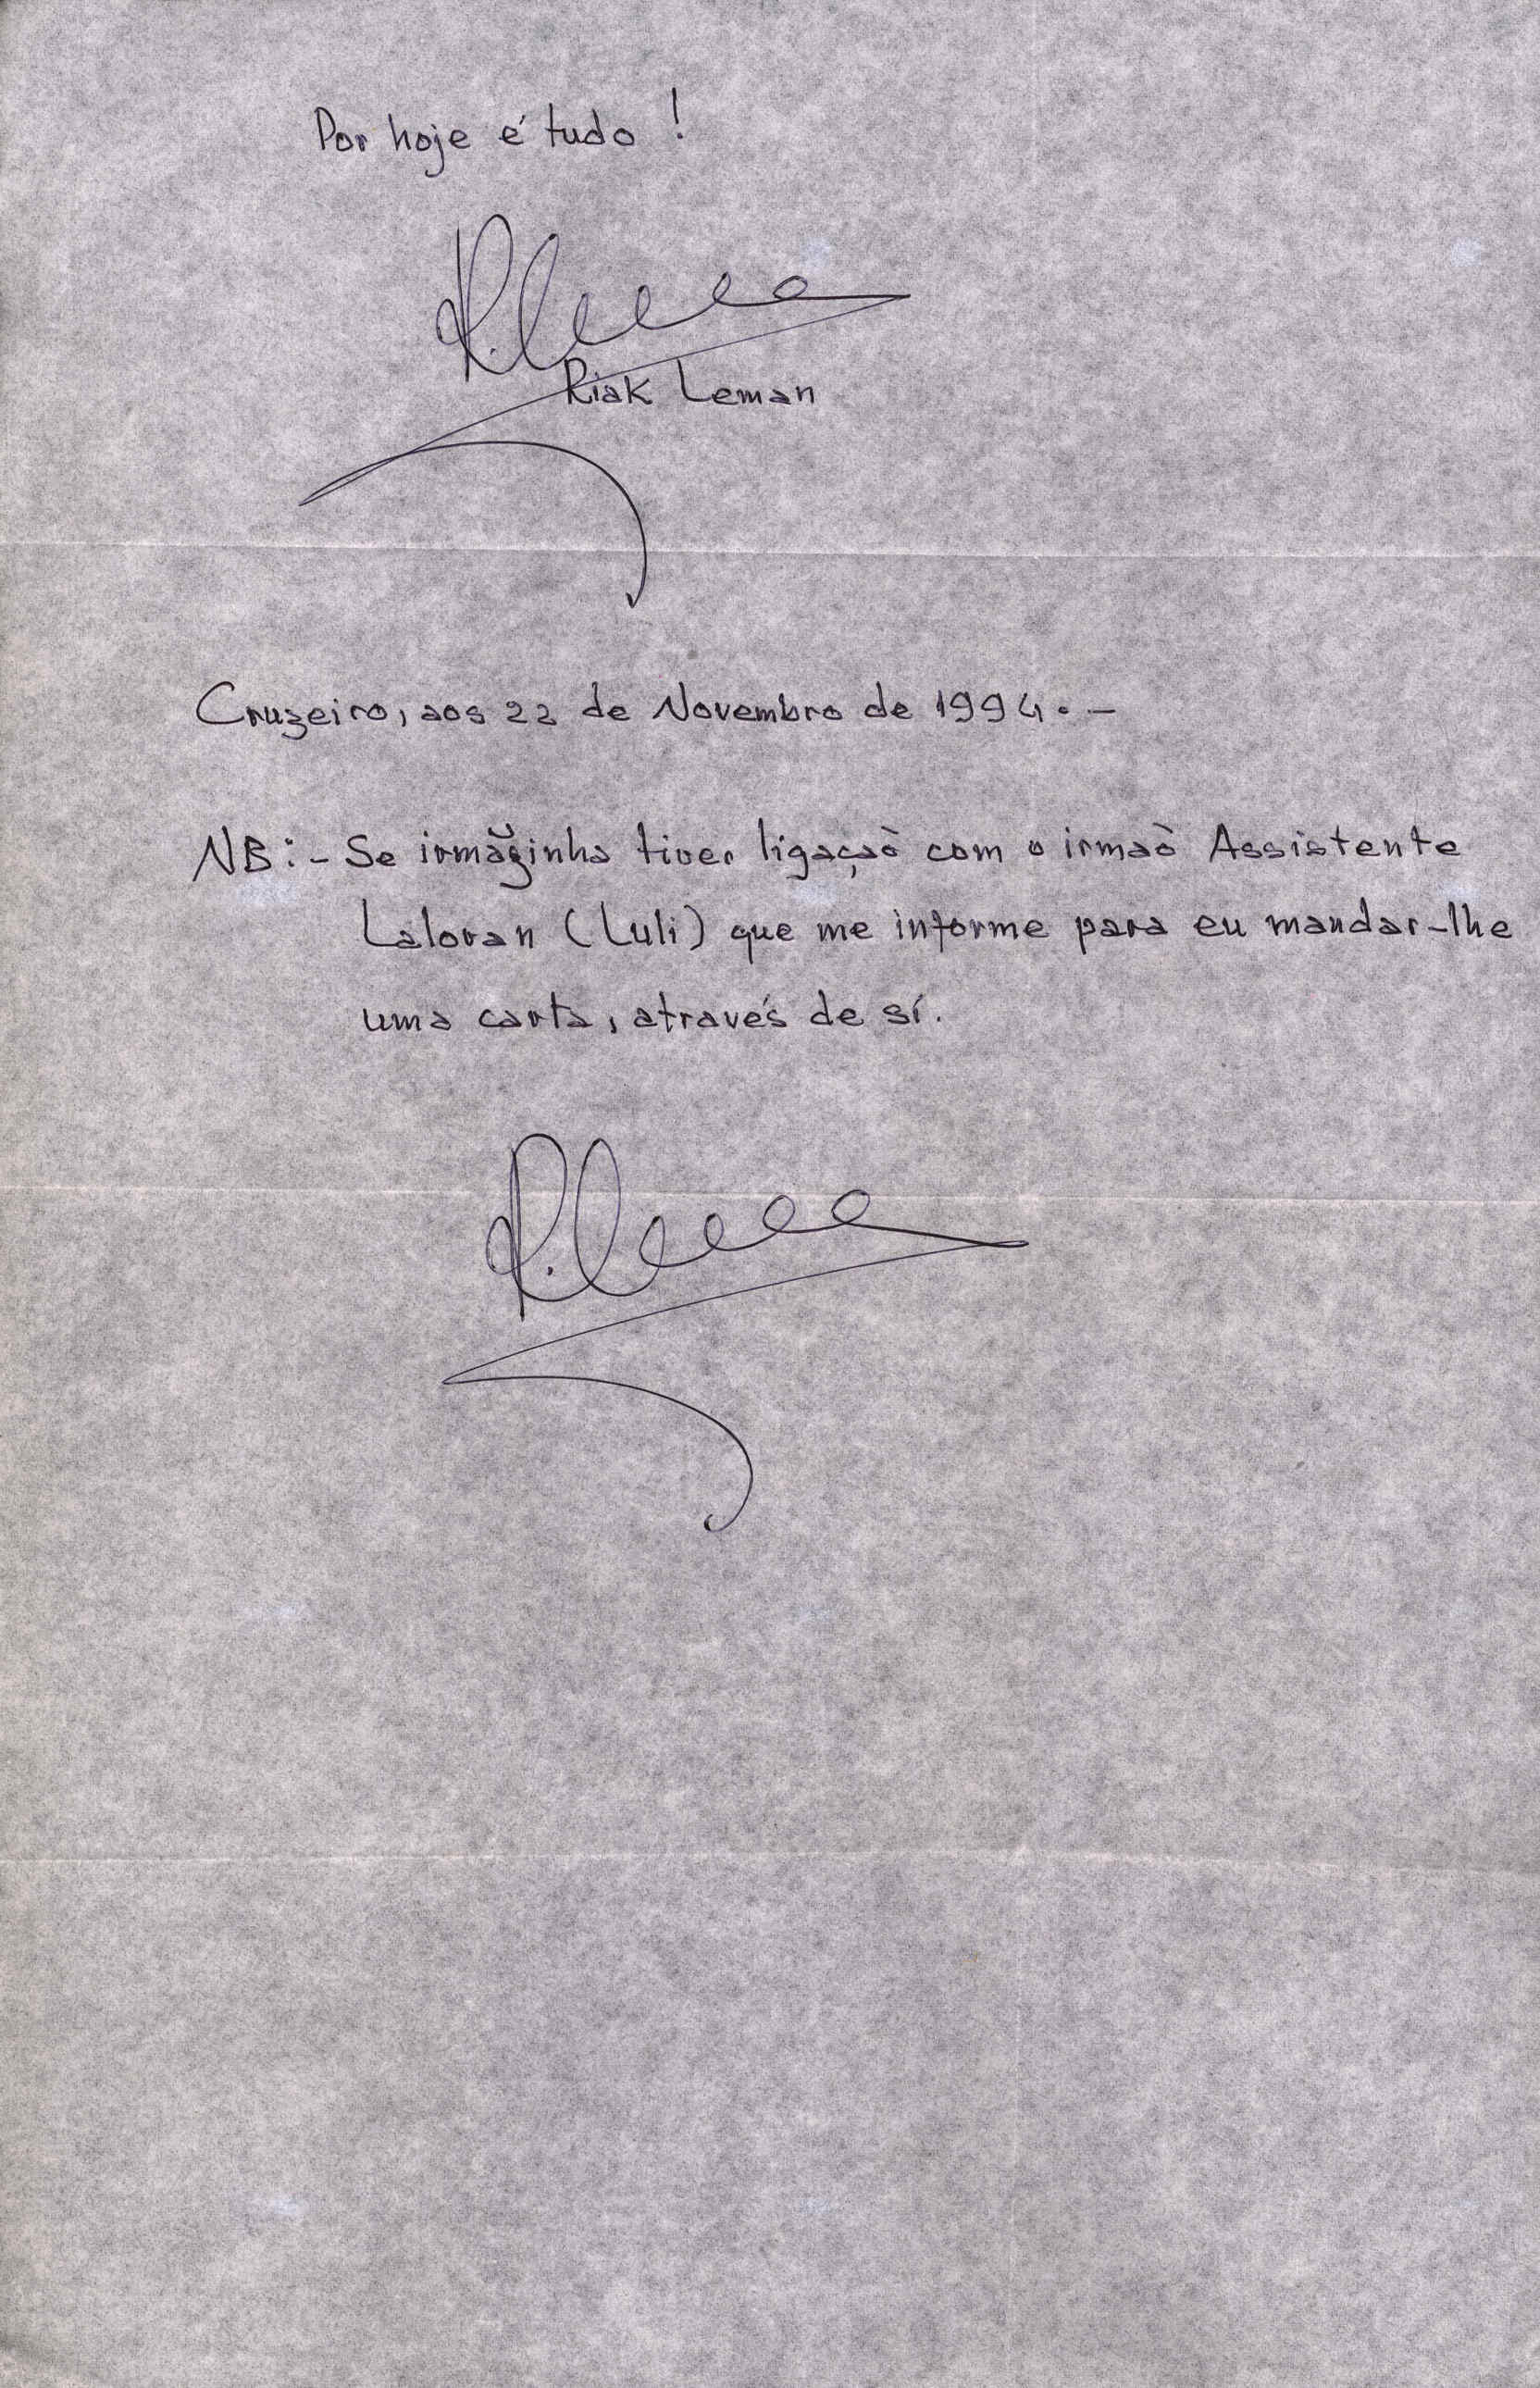 Por hoje é tudo !
Riak Leman
Cruzeiro, aos 22 de Novembro de 1994. -
NB: - Se irmãzinha tiver ligaçaò com o irmaò Assistente
Laloran (Luli) que me informe para eu mandar-lhe
uma carta, através de sí.